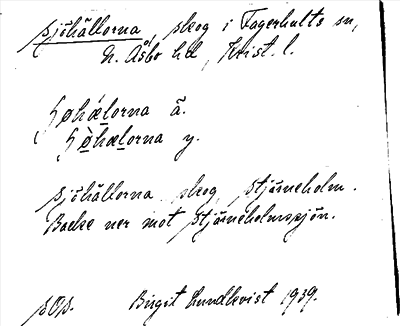 sjöhällorna, skog i Fagerhults sn,
N. Åsbo hd, Krist. l.
ʃøhælorna ä.
ʃø̀hælorna y.
sjöhällorna skog, Stjärneholm.
Backe ner mot Stjärneholmssjön.
sOs. Birgit Lundkvist 1939.